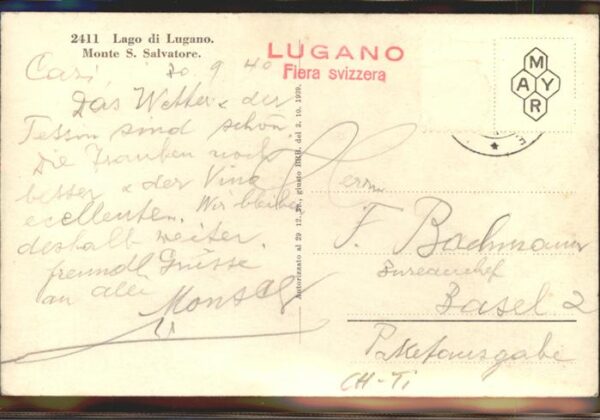 2411 Lago di Lugano.
Monte S. Salvatore.
LUGANO
Fiera svizzera
M
A Y
R
30. 9 40
Das Wetter & der
Tessin sind schön.
Die Trauben noch
besser & der Vino
ecellenten. Wir bleiben
deshalb weiter.
freundl Grüsse
an alle
Autorizzato al 29 12. 38, giusto BRB. del 2. 10. 1939.
Herrn
F. Bachmann
Bureauchef
Basel 2
CH-Ti